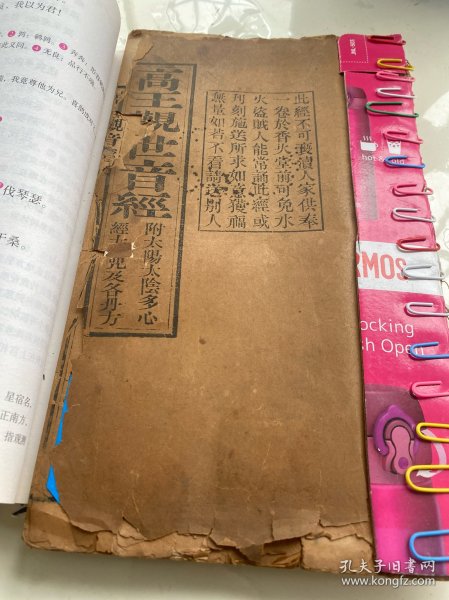 我以为君！
鹑：鹌鹑。
无良：品行不端
我竟尊他为兄。
伐琴瑟。
于桑。
星宿名，
正南方，
指观测
此經不可褻瀆人家供奉
一卷於香火堂前可免水
火盜賊人能常誦此經或
刊刻施送所求如意獲福
無量如皆不看請送別人
高王觀世音經
附太陽太陰多心
經 咒及各丹方
hot & cold
RMOS
ocking
sh Open
孔夫子旧书网
www.kongfz.com